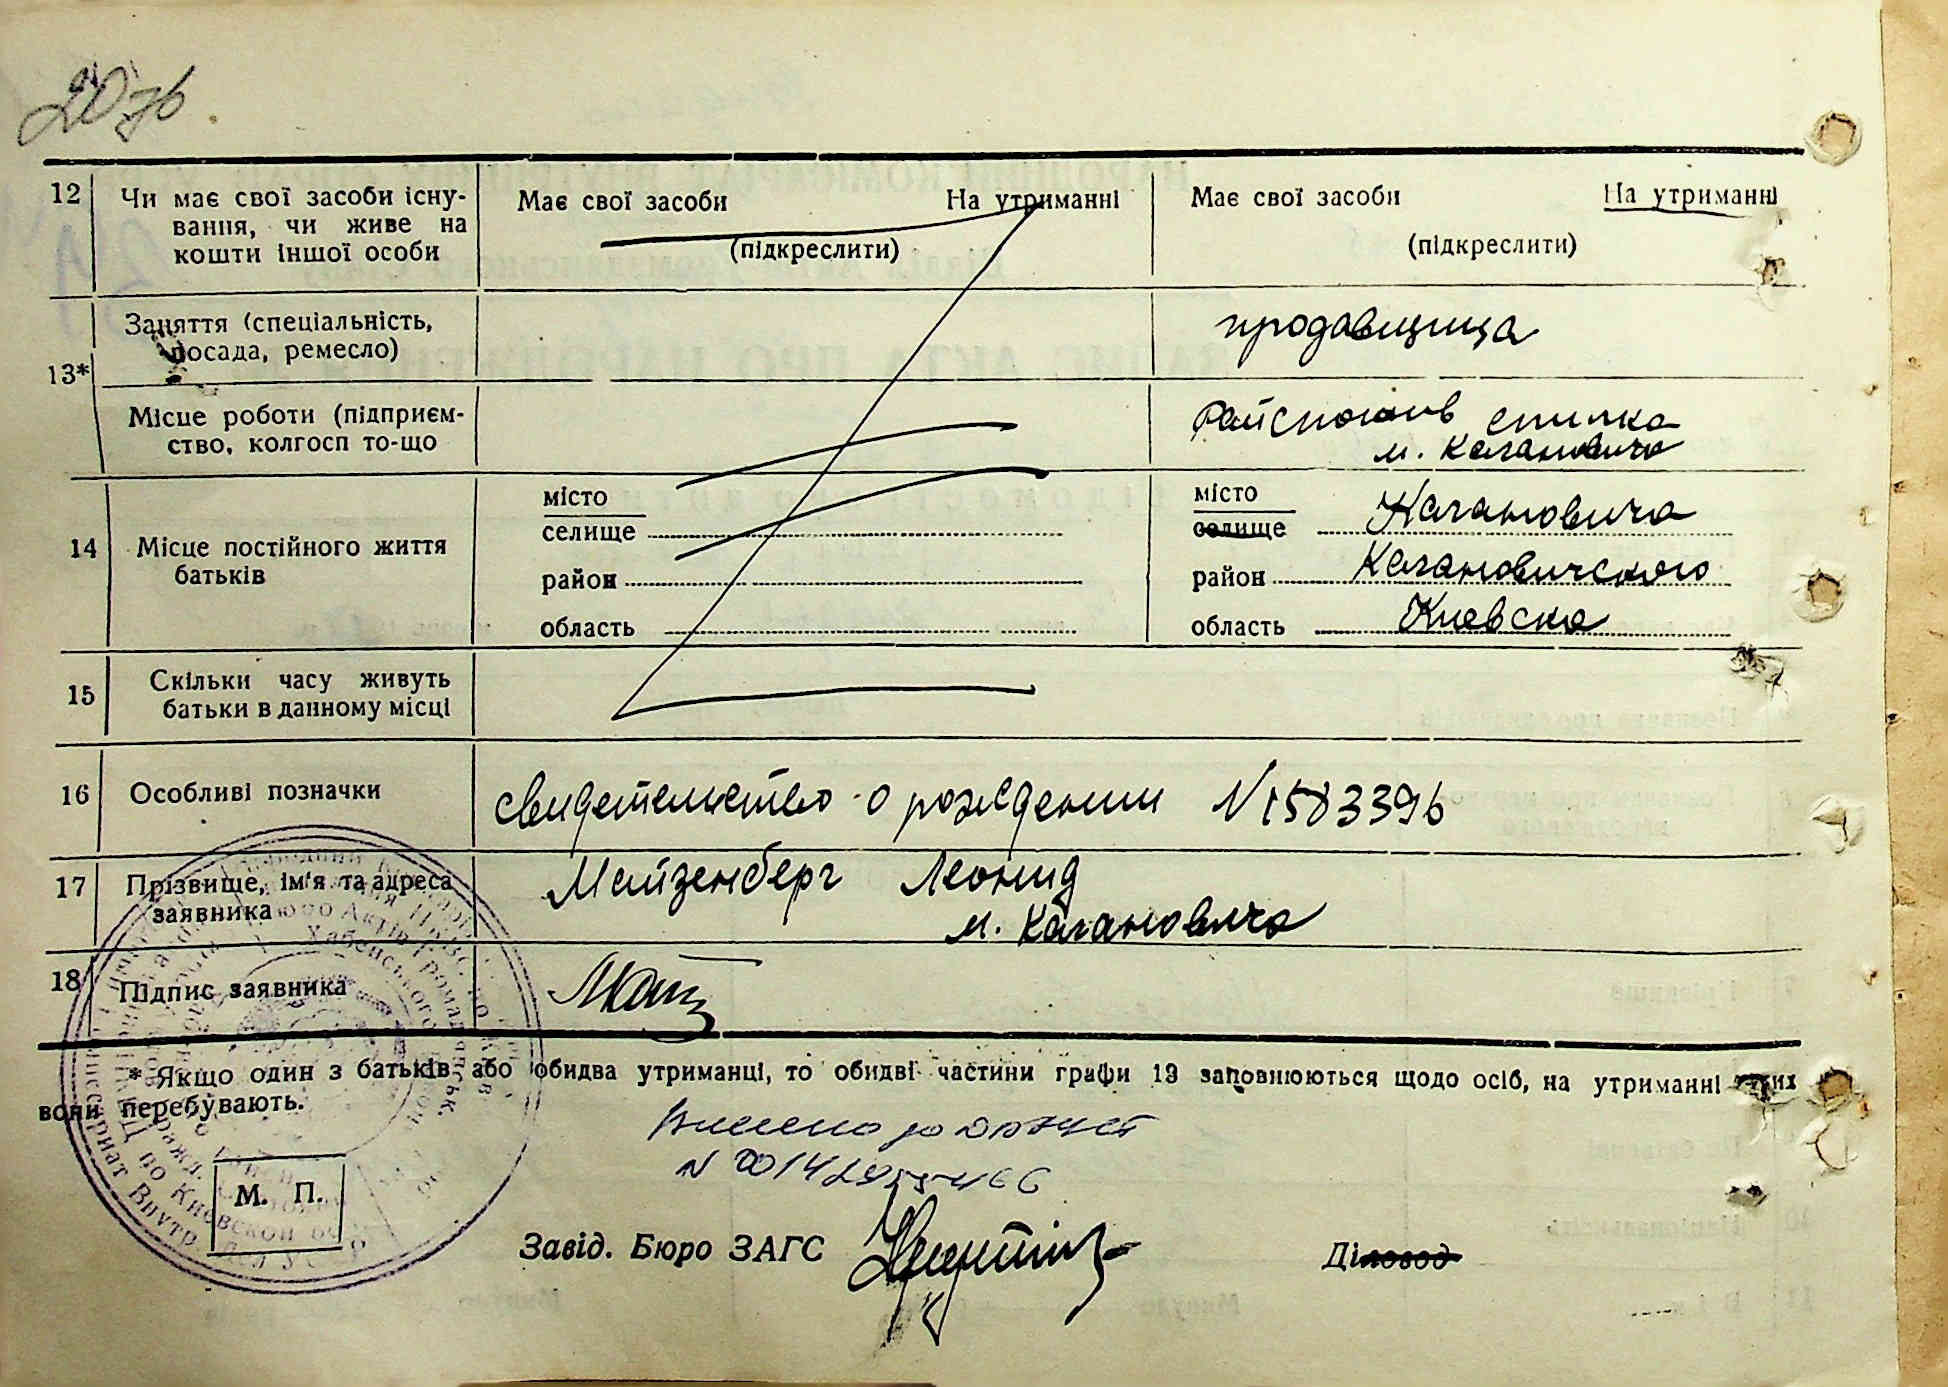 207б
12 Чи має свої засоби існу-
вання, чи живе на
кошти іншої особи
Має свої засоби На утриманні
(підкреслити)
Має свої засоби На утриманні
(підкреслити)
13*
Заняття (спеціальність,
посада, ремесло)
продавщица
Місце роботи (підприєм-
ство, колгосп то-що
спилка
м. Кагановича
14 Місце постійного життя
батьків
місто
селище
район
область
місто
селище Кагановича
район Кагановичского
область Киевска
15 Скільки часу живуть
батьки в данному місці
16 Особливі позначки
свидетельство о рождении N 158339б
17 Прізвище, ім'я та адреса
заявника
Майзенберг Леонид
м. Кагановича
18 Підпис заявника
* Якщо один з батьків або обидва утриманці, то обидві частини графи 13 заповнюються щодо осіб, на утриманні яких
вони перебувають.
Внесено до
N 00142955466
М. П.
Завід. Бюро ЗАГС
Діловод